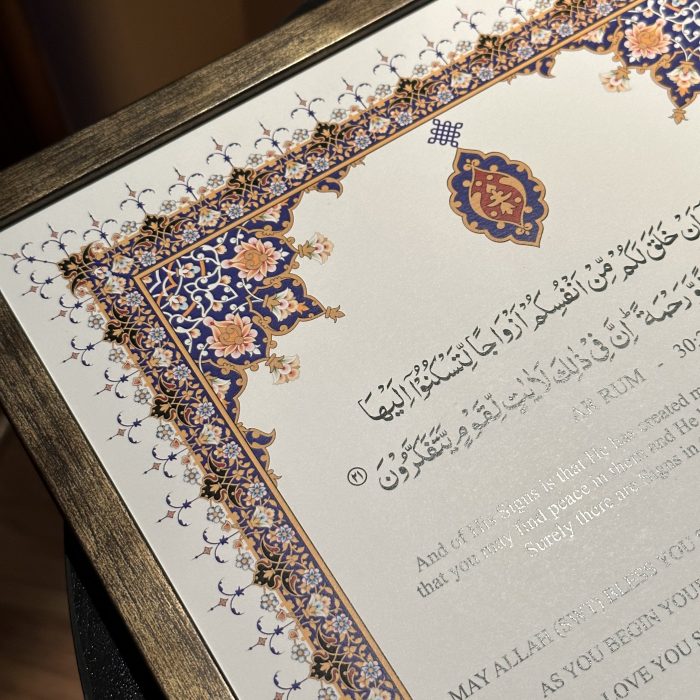 خَلَقَ لَكُمْ مِّنْ اَنْفُسِكُمْ اَزْوَاجًا لِّتَسْكُنُوْٓا اِلَيْهَا
وَّرَحْمَةً ؕ اِنَّ فِيْ ذٰلِكَ لَاٰيٰتٍ لِّقَوْمٍ يَّتَفَكَّرُوْنَ ﴿٢١﴾
AR RUM - 30:
And of His Signs is that He has created
that you may find peace in them and He
Surely there are Signs in
MAY ALLAH (SWT) BLESS YOU
AS YOU BEGIN YOUR
LOVE YOU